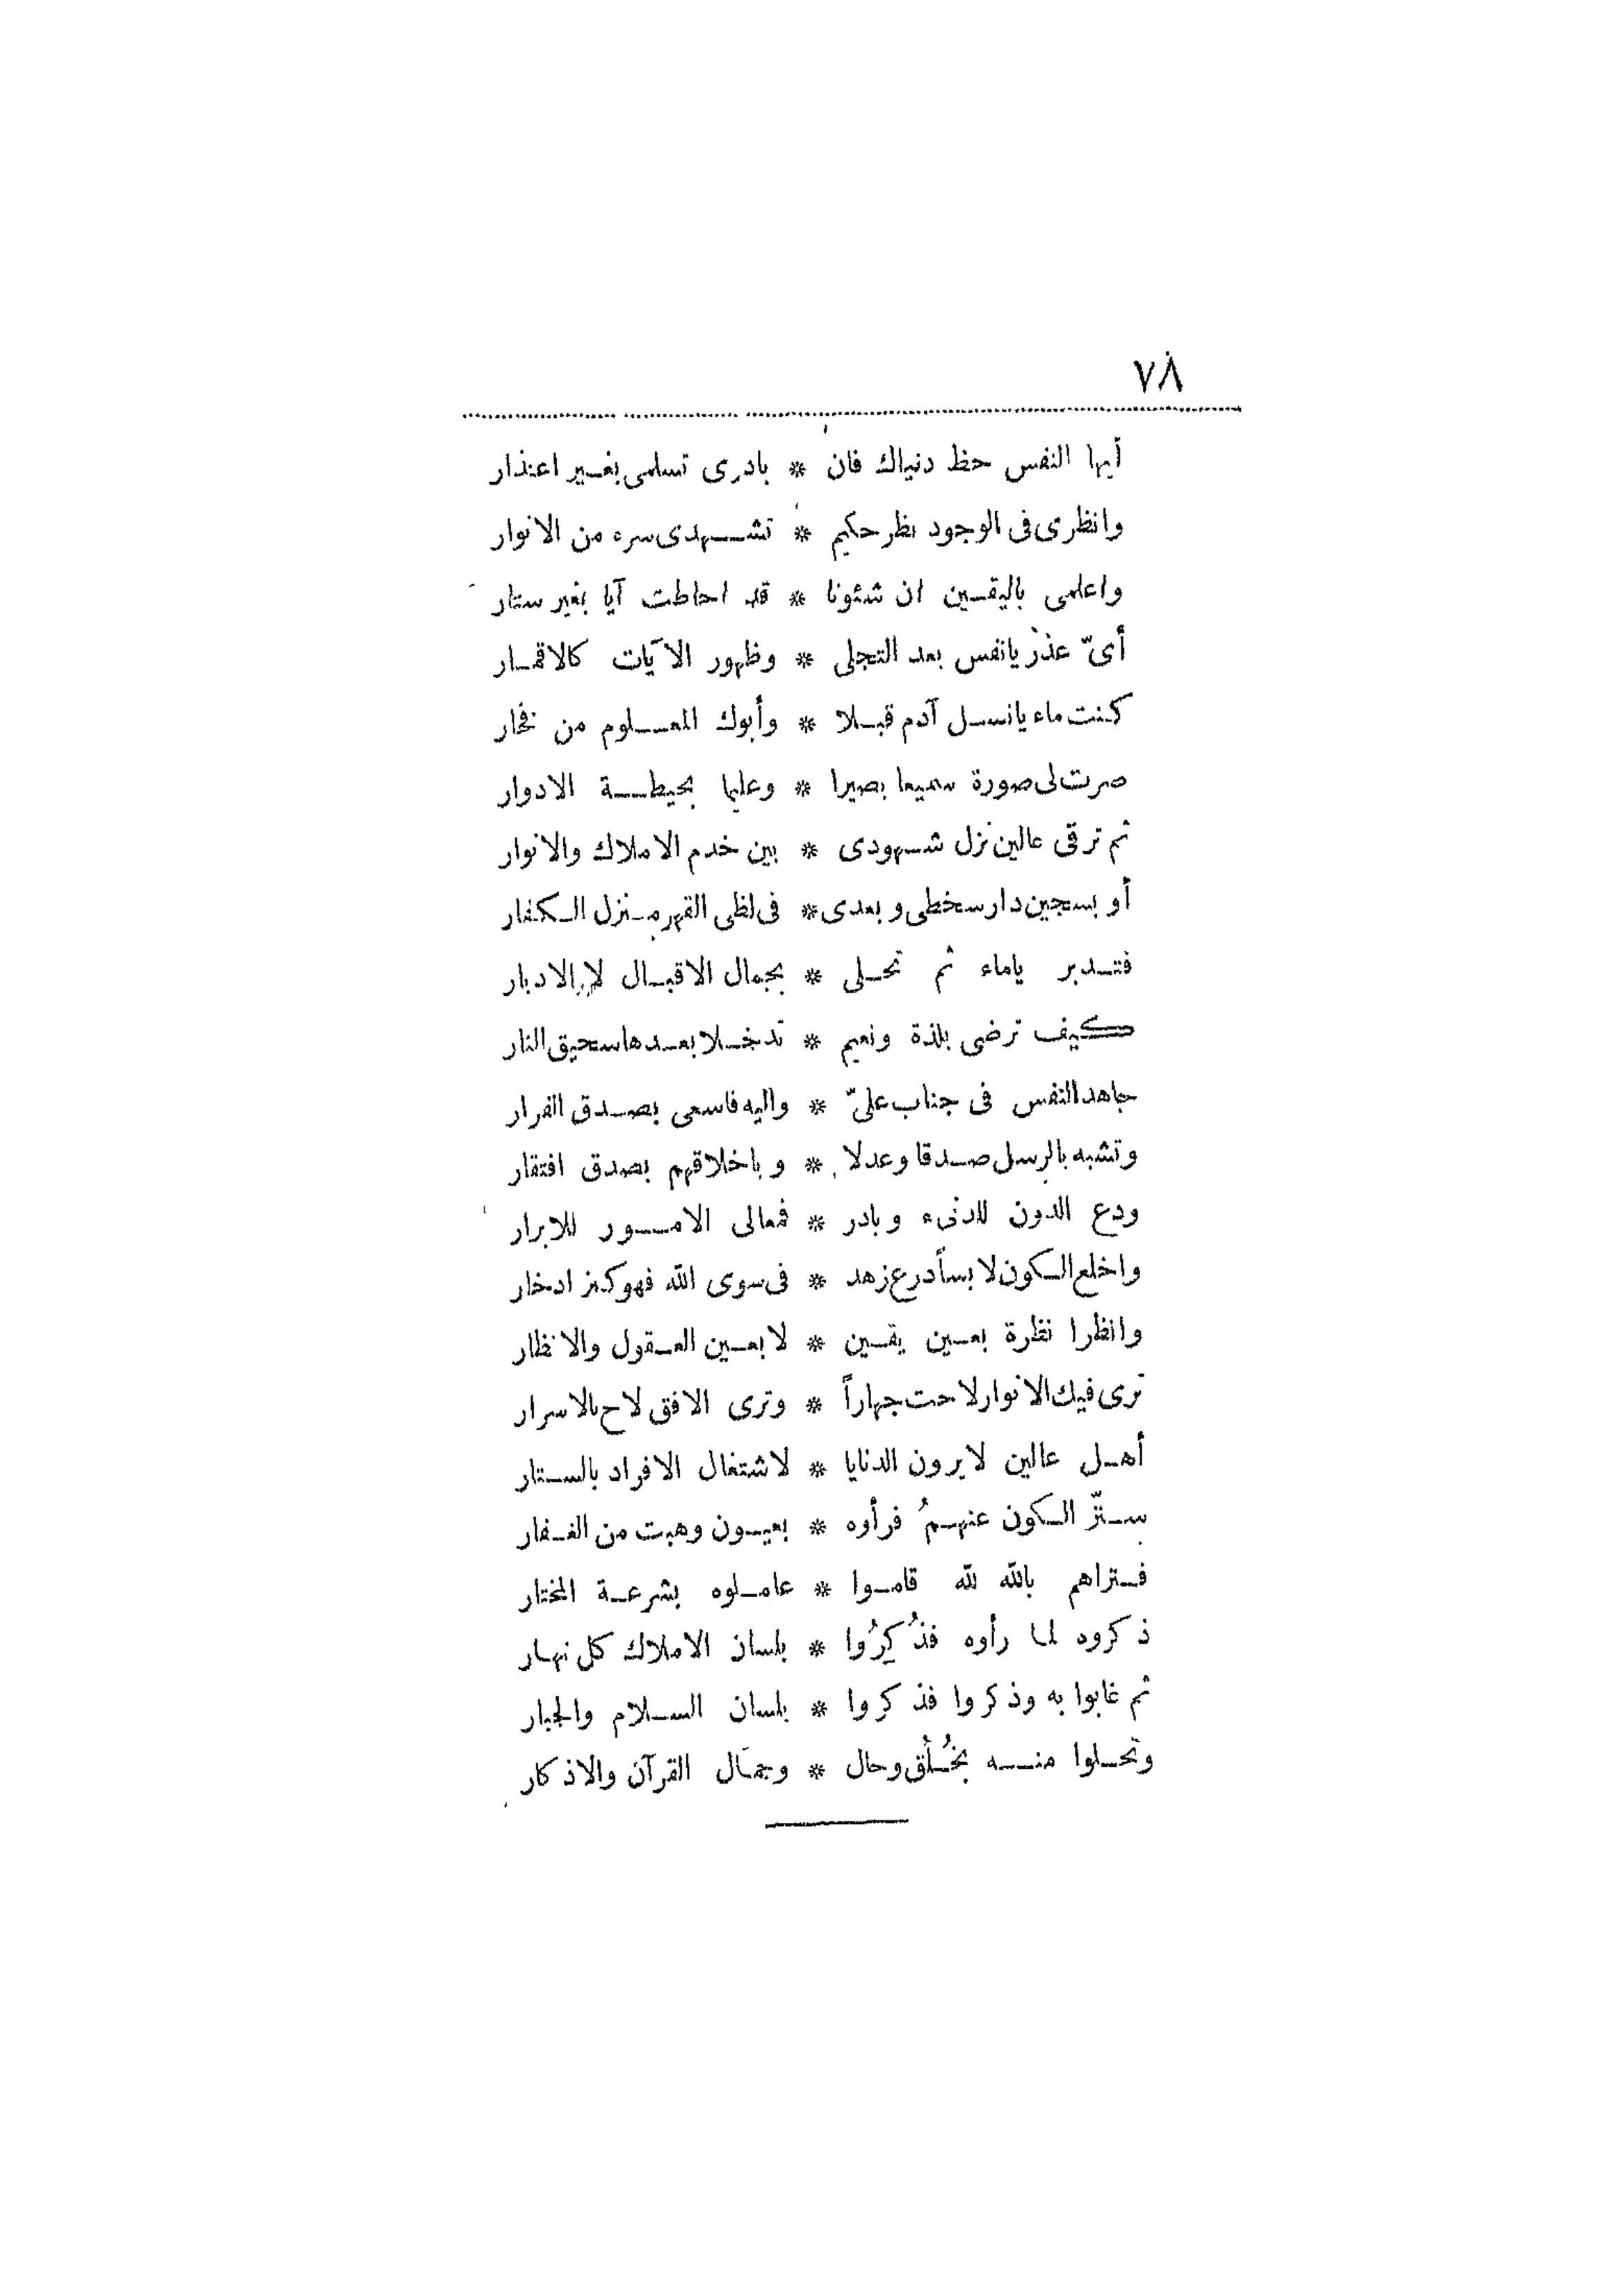 ٧٨
أيها النفس حظ دنياك فان * بادرى تسلمى بغير اعتذار
وانظرى فى الوجود نظر حكيم * تشهدى سره من الانوار
واعلمى باليقين ان شئونا * قد احاطت آيا بغير ستار
أىّ عذر يانفس بعد التجلى * وظهور الآيات كالاقمار
كنت ماء يانسل آدم قبلا * وأبوك المعلوم من فخار
صرت لى صورة سميعا بصيرا * وعليها بحيطة الادوار
ثم ترقى عالين نزل شهودى * بين خدم الاملاك والانوار
أو بسجين دار سخطى وبعدى * فى لظى القهر منزل الكفار
فتدبر ياماء ثم تحلى * بجمال الاقبال لا الادبار
كيف ترضى بلذة ونعيم * تدخلا بعدها سحيق النار
جاهد النفس فى جناب علىّ * واليه فاسعى بصدق الفرار
وتشبه بالرسل صدقا وعدلا * وباخلاقهم بصدق افتقار
ودع الدون للدنىء وبادر * فمعالى الامور للابرار
واخلع الكون لابساً درع زهد * فى سوى الله فهو كنز ادخار
وانظرا نظرة بعين يقين * لا بعين العقول والانظار
ترى فيك الانوار لاحت جهاراً * وترى الافق لاح بالاسرار
أهل عالين لا يرون الدنايا * لاشتغال الافراد بالستار
ستّر الكون عنهمُ فرأوه * بعيون وهبت من الغفار
فتراهم بالله لله قاموا * عاملوه بشرعة المختار
ذكروه لما رأوه فذُكِرُوا * بلسان الاملاك كل نهار
ثم غابوا به وذكروا فذكروا * بلسان السلام والجبار
وتحلوا منه بخُلُق وحال * وجمال القرآن والاذكار